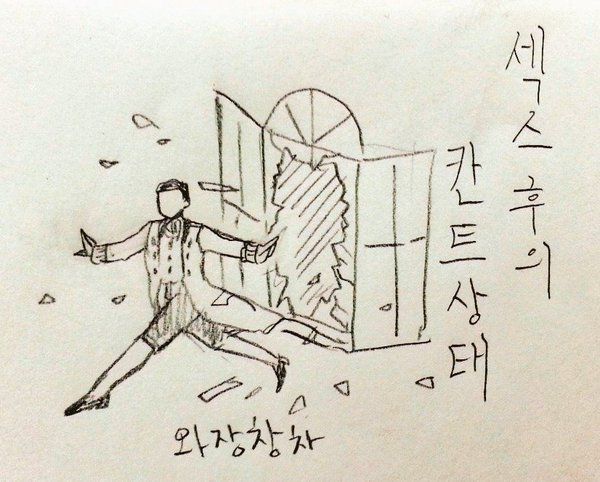 섹스 후의
칸트상태
와장창차